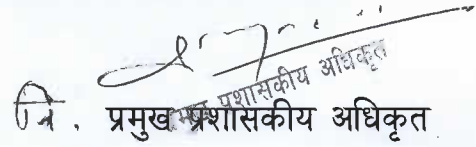 प्रमुख प्रशासकीय अधिकृत
नि. प्रमुख प्रशासकीय अधिकृत